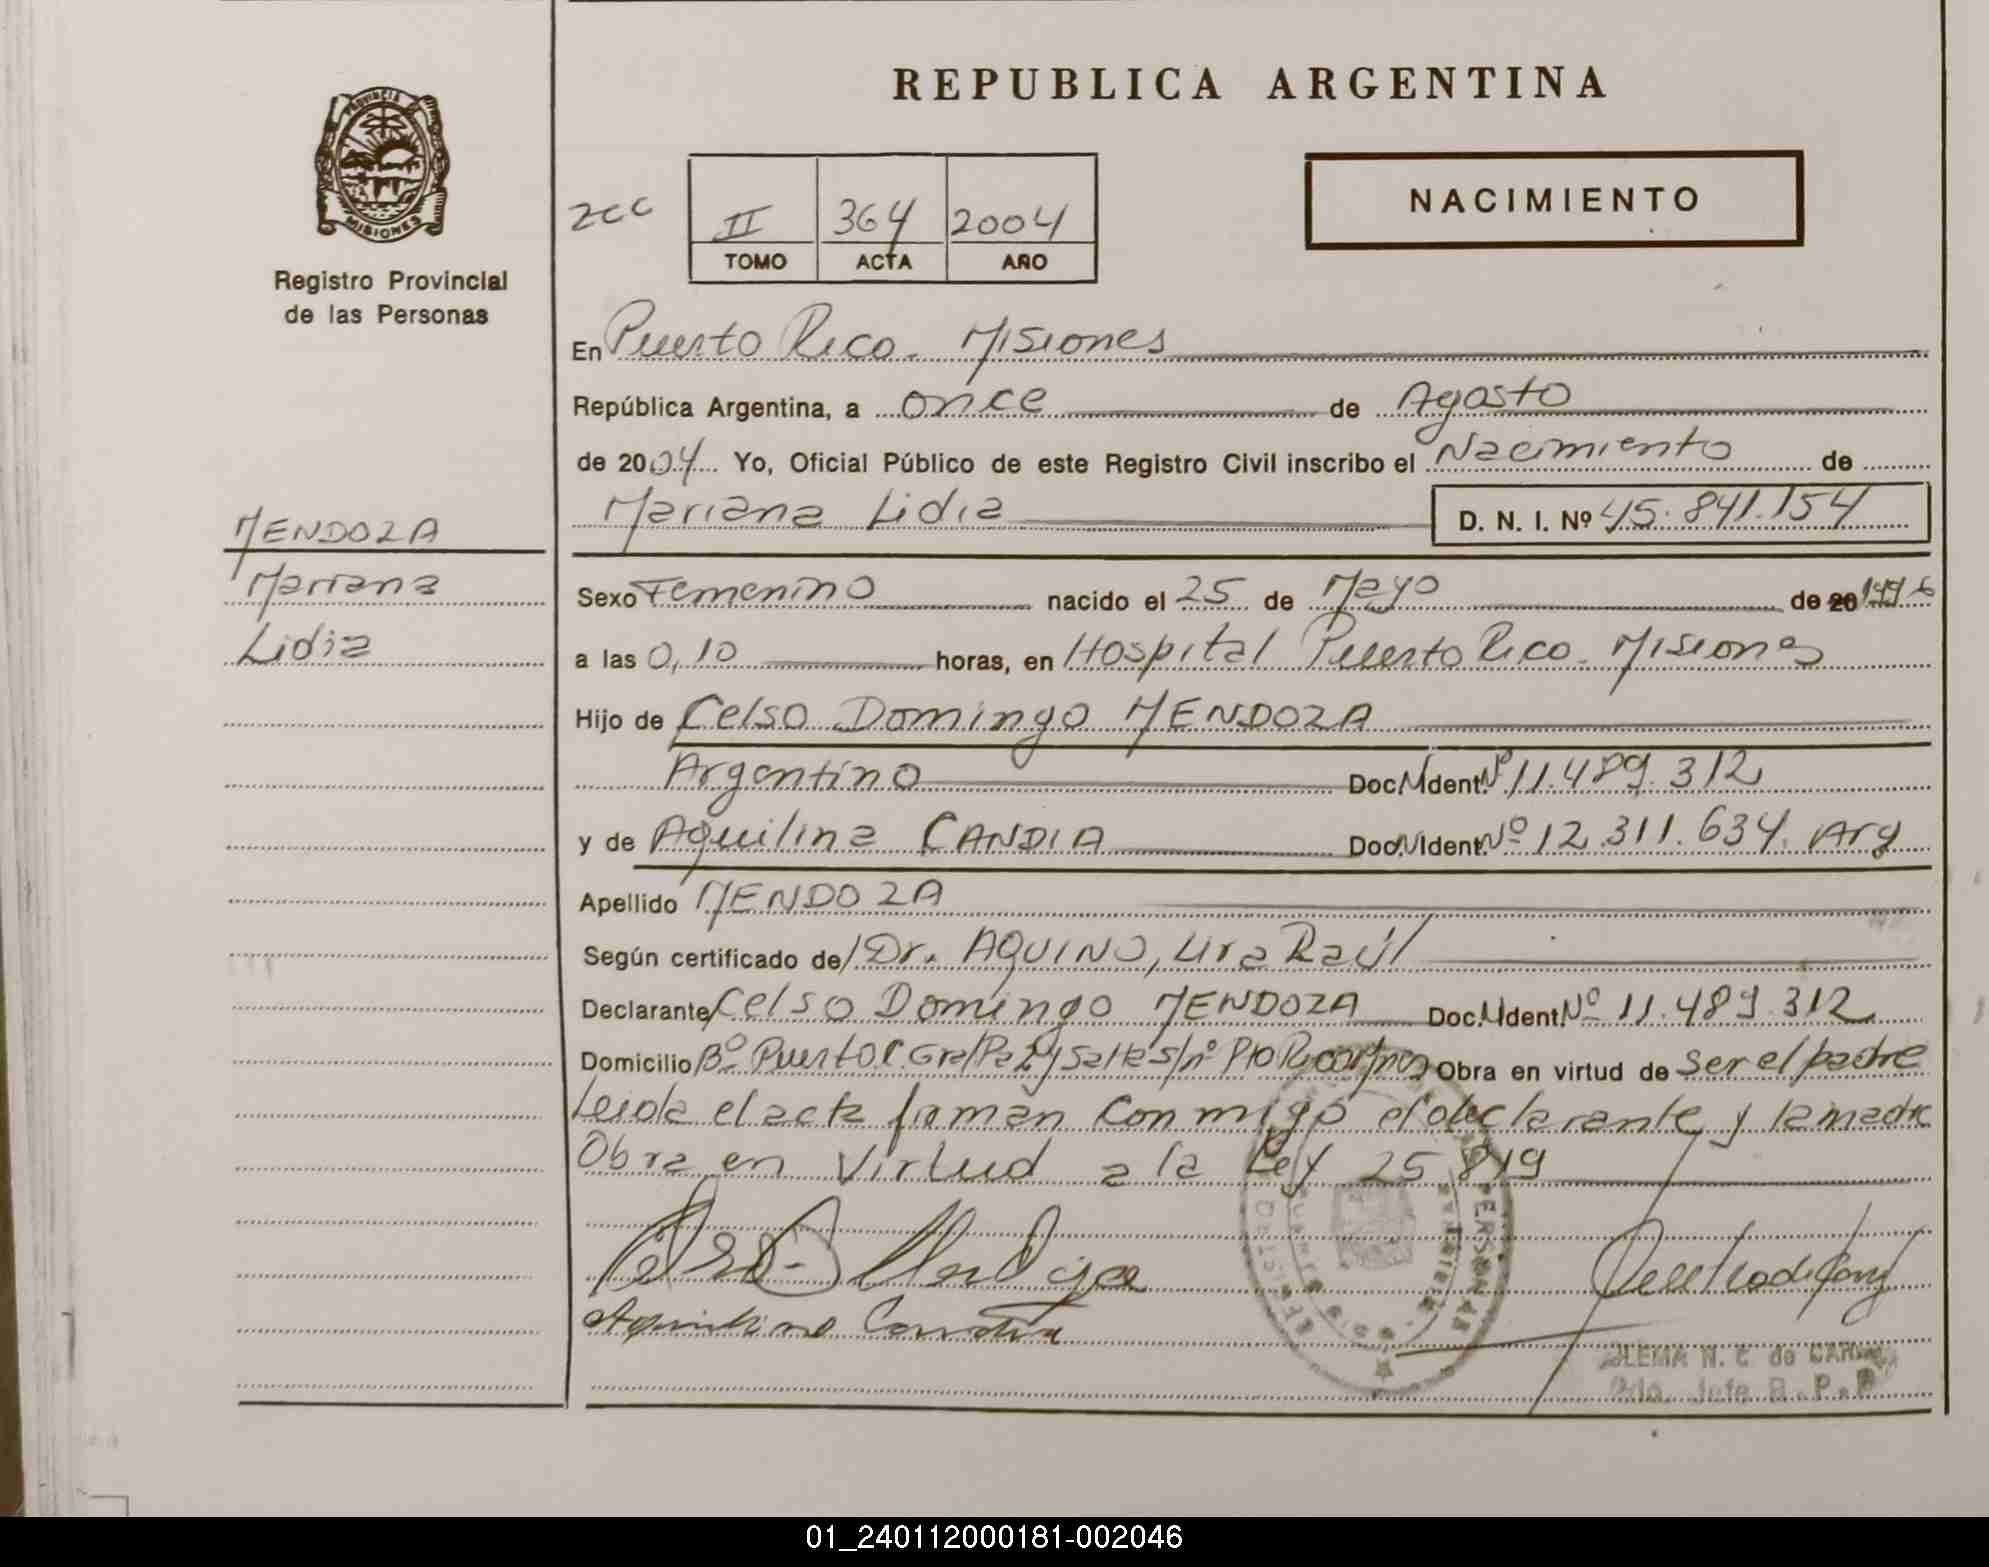 REPUBLICA ARGENTINA
PROVINCIA
MISIONES
Registro Provincial
de las Personas
NACIMIENTO
II 364 2004
TOMO ACTA AÑO
En Puerto Rico. Misiones
República Argentina, a once de Agosto
de 2004 Yo, Oficial Público de este Registro Civil inscribo el Nacimiento de
Mariana Lidia D. N. I. Nº 45.841.154
MENDOZA
Mariana
Lidia
Sexo Femenino nacido el 25 de Mayo de 20
a las 0,10 horas, en Hospital Puerto Rico. Misiones
Hijo de Celso Domingo MENDOZA
Argentino Doc. Ident. Nº 11.489.312
y de Aquilina CANDIA Doc. Ident. Nº 12.311.634. Arg
Apellido MENDOZA
Según certificado de Dr. AQUINO, Raúl
Declarante Celso Domingo MENDOZA Doc. Ident. Nº 11.489.312
Domicilio Bº Puerto s/nº Obra en virtud de ser el padre
Leida el acta firman conmigo el declarante y la madre
Obra en virtud a la Ley 25 819
01_240112000181-002046